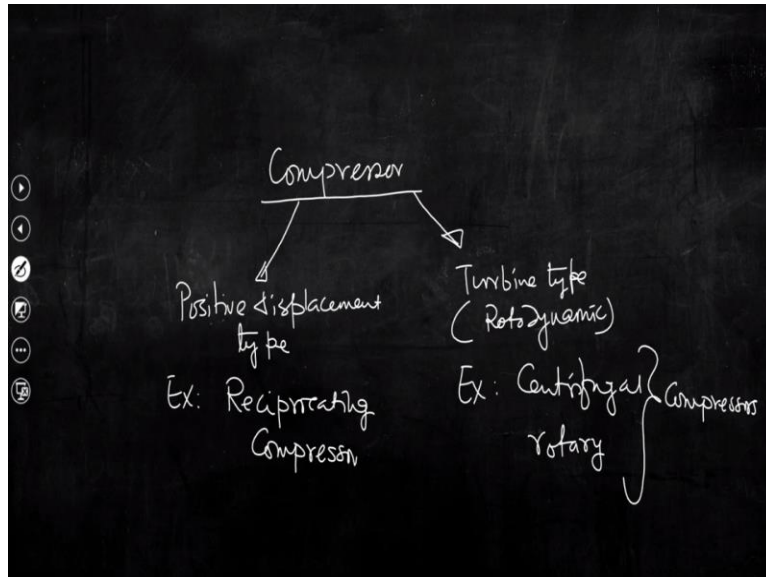 Compressor
Positive displacement
type
Ex: Reciprocating
Compressor
Turbine type
(Rotodynamic)
Ex: Centrifugal
rotary
Compressors